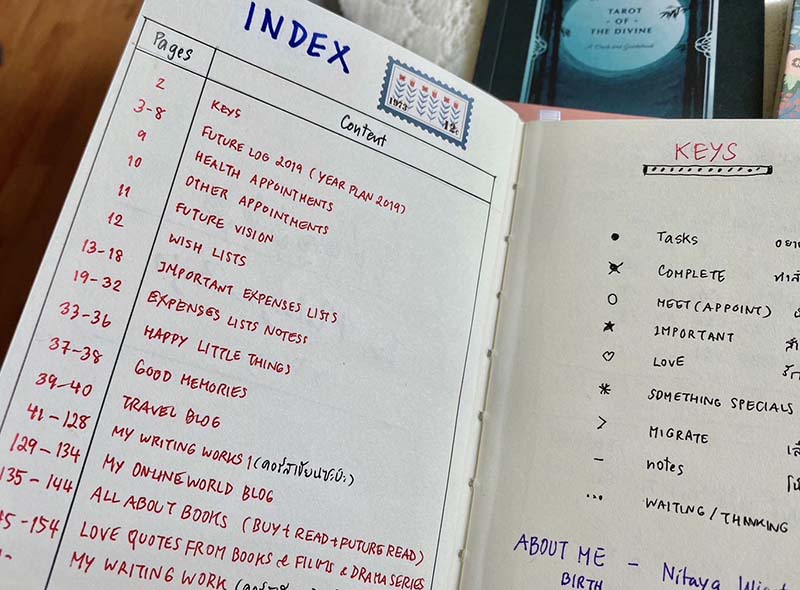 TAROT
• OF •
THE DIVINE
A Deck and Guidebook
INDEX
Pages Content
1973 12c
2 KEYS
3-8 FUTURE LOG 2019 (YEAR PLAN 2019)
9 HEALTH APPOINTMENTS
10 OTHER APPOINTMENTS
11 FUTURE VISION
12 WISH LISTS
13-18 IMPORTANT EXPENSES LISTS
19-32 EXPENSES LISTS NOTESS
33-36 HAPPY LITTLE THINGS
37-38 GOOD MEMORIES
39-40 TRAVEL BLOG
41-128 MY WRITING WORKS 1
129-134 MY ONLINEWORLD BLOG
135-144 ALL ABOUT BOOKS (BUY + READ + FUTURE READ)
45-154 LOVE QUOTES FROM BOOKS & FILMS & DRAMA SERIES
MY WRITING WORK
KEYS
• Tasks
COMPLETE
○ MEET (APPOINT)
★ IMPORTANT
♡ LOVE
* SOMETHING SPECIALS
> MIGRATE
- notes
... WAITING / THINKING
ABOUT ME - Nitaya
BIRTH